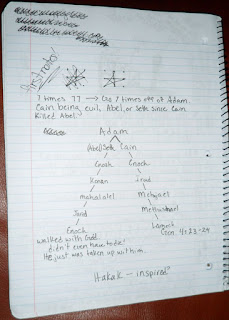 7 times 77 → Gen 7 times one of Adam.
Cain being evil, Abel, or Seth since Cain
Killed Abel.
Adam
(Abel) Seth Cain
Enosh Enoch
Kenan Irad
mahalalel Mehujael
Jared Methushael
Enoch Lamech
walked with God. Gen. 4:23-24
didn't even have to die!
He just was taken up with him.
Hakak - inspired?